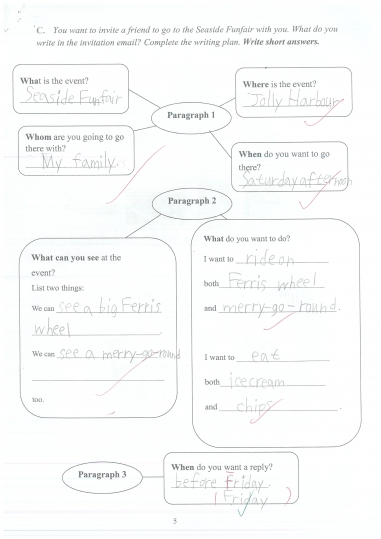 C. You want to invite a friend to go to the Seaside Funfair with you. What do you
write in the invitation email? Complete the writing plan. Write short answers.
What is the event?
Seaside Funfair
Where is the event?
Jolly Harbour
Paragraph 1
Whom are you going to go
there with?
My family.
When do you want to go
there?
Saturday afternoon
Paragraph 2
What can you see at the
event?
List two things:
We can see a big Ferris
wheel
We can see a merry-go-round
too.
What do you want to do?
I want to ride on
both Ferris wheel
and merry-go-round.
I want to eat
both icecream
and chips.
Paragraph 3
When do you want a reply?
before Friday.
(Friday)
5